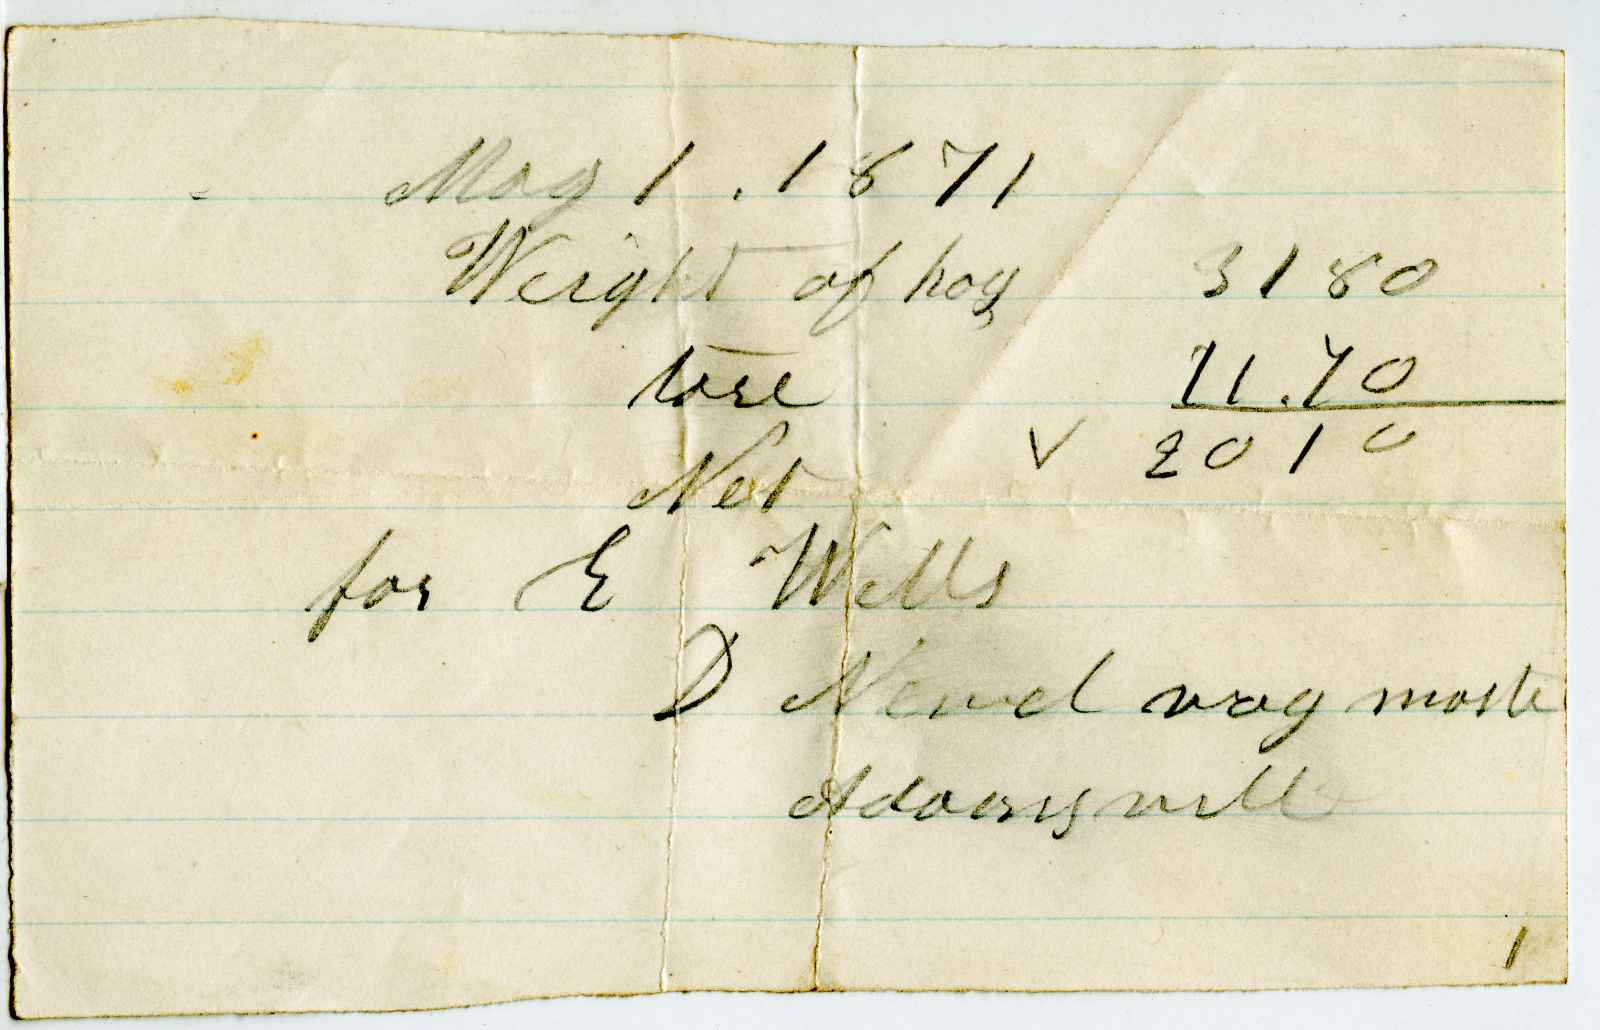 May 1. 1871
Weight of hog 3180
tare 11.70
Net √ 2010
for E Wells
D Newel wag maste
Adamsvill
1